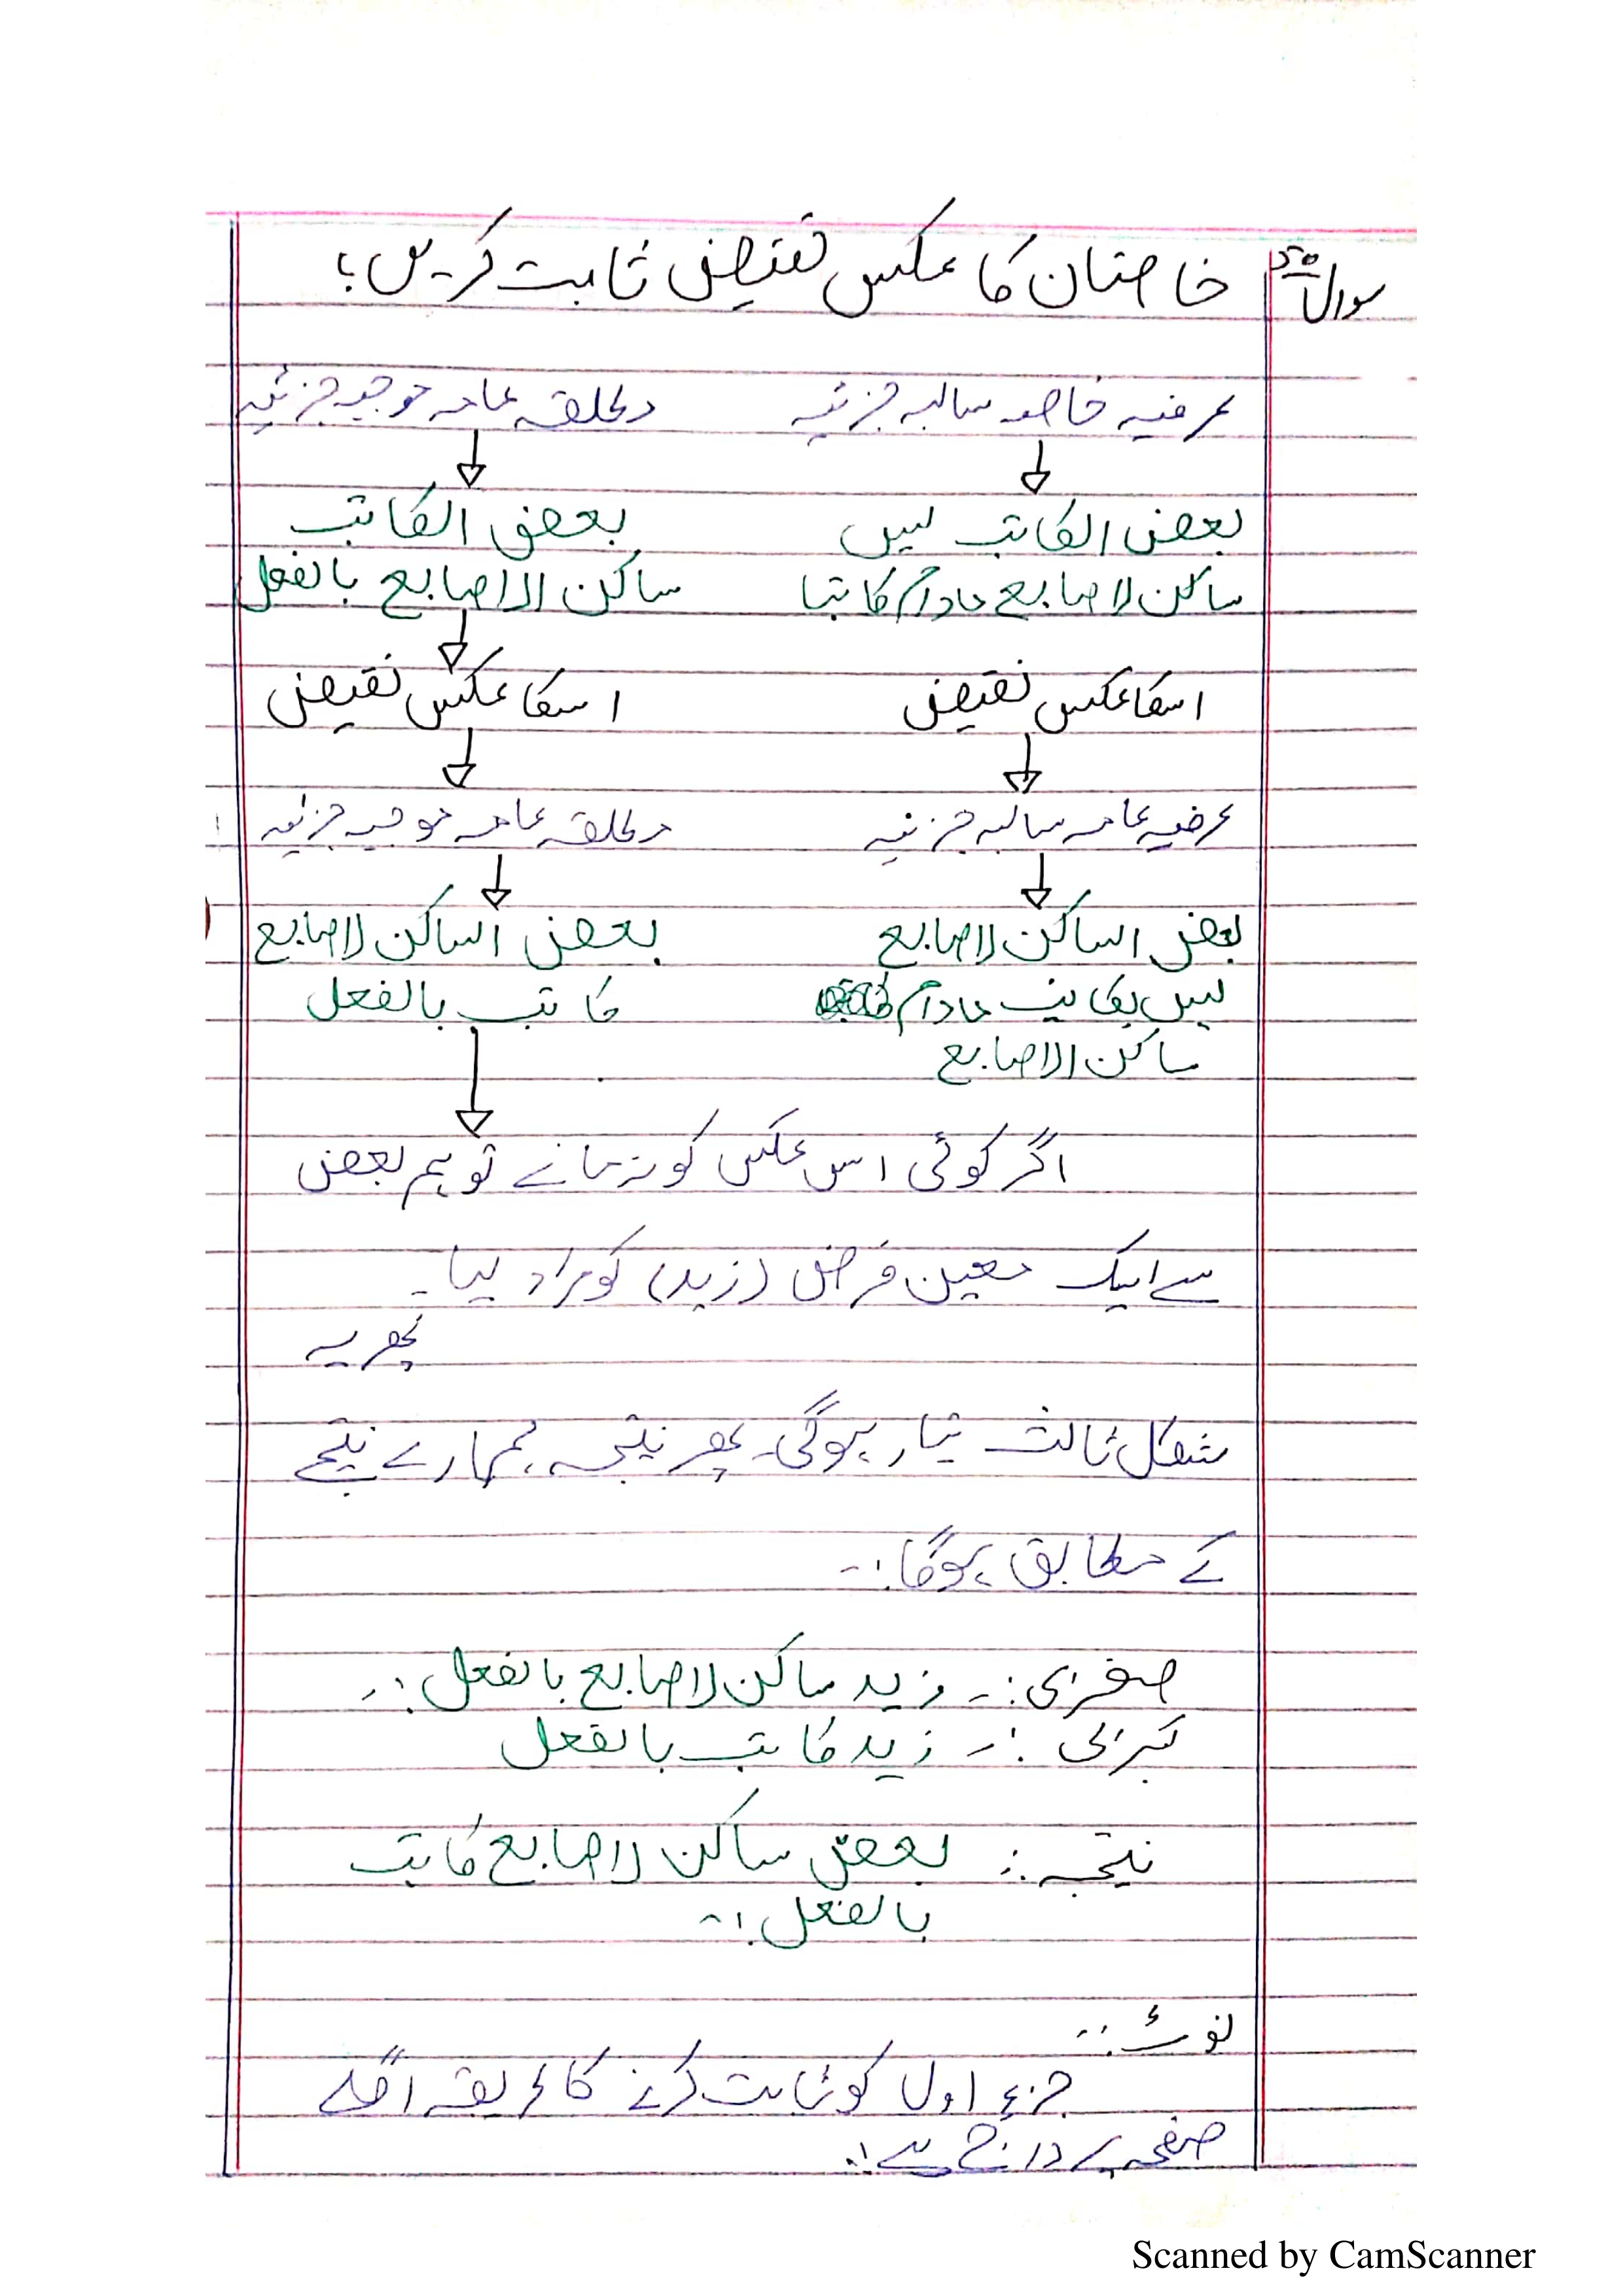 سوال خاصتان کا عکس نقیض ثابت کریں؟
عرفیہ خاصہ سالبہ جزئیہ مطلقہ عامہ موجبہ جزئیہ
بعض الکاتب لیس بعض الکاتب
ساکن لاصابع مادام کاتبا ساکن الاصابع بالفعل
اسکا عکس نقیض اسکا عکس نقیض
عرفیہ عامہ سالبہ جزئیہ مطلقہ عامہ موجبہ جزئیہ
بعض الساکن لاصابع بعض الساکن لاصابع
لیس بکاتب مادام کاتب بالفعل
ساکن الاصابع
اگر کوئی اس عکس کو نہ مانے تو ہم بعض
سے ایک معین فرض (زید) کو مراد لیا۔
پھر یہ
شکل ثالث تیار ہوگی۔ پھر نتیجہ ہمارے نتیجے
کے مطابق ہوگا:-
صغریٰ :- زید ساکن لاصابع بالفعل :-
کبریٰ :- زید کاتب بالفعل
نتیجہ :- بعض ساکن لاصابع کاتب
بالفعل :-
نوٹ :-
جزء اول کو ثابت کرنے کا طریقہ اگلے
صفحہ پے درج ہے :-
Scanned by CamScanner